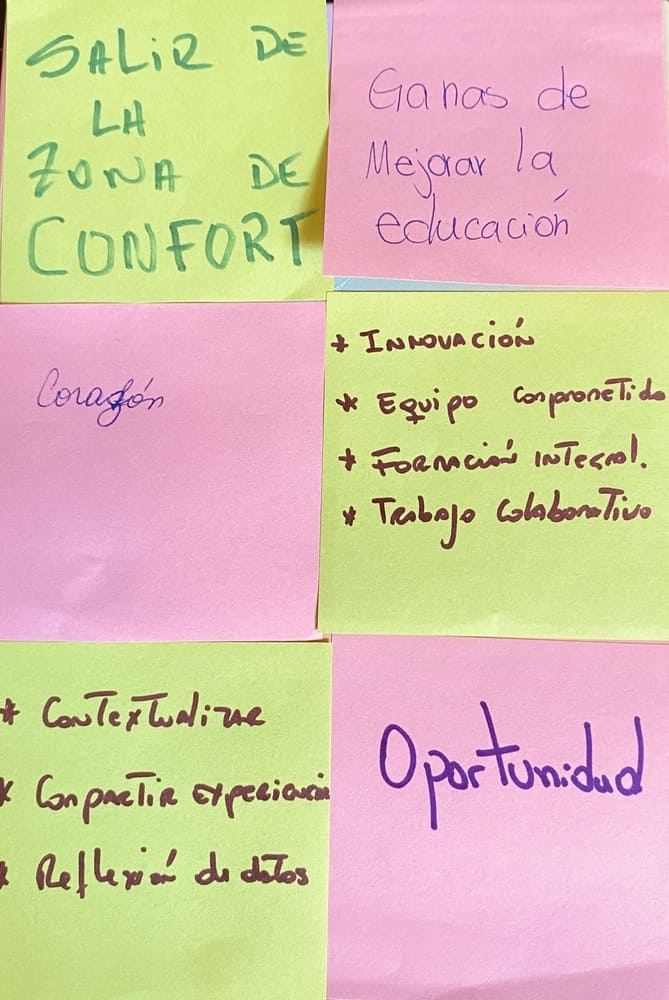 SALIR DE
LA
ZONA DE
CONFORT
Ganas de
Mejorar la
educación
Corazón
* INNOVACIÓN
* Equipo comprometido
* Formación integral.
* Trabajo colaborativo
* Contextualizar
* Compartir experiencia
* Reflexión de datos
Oportunidad